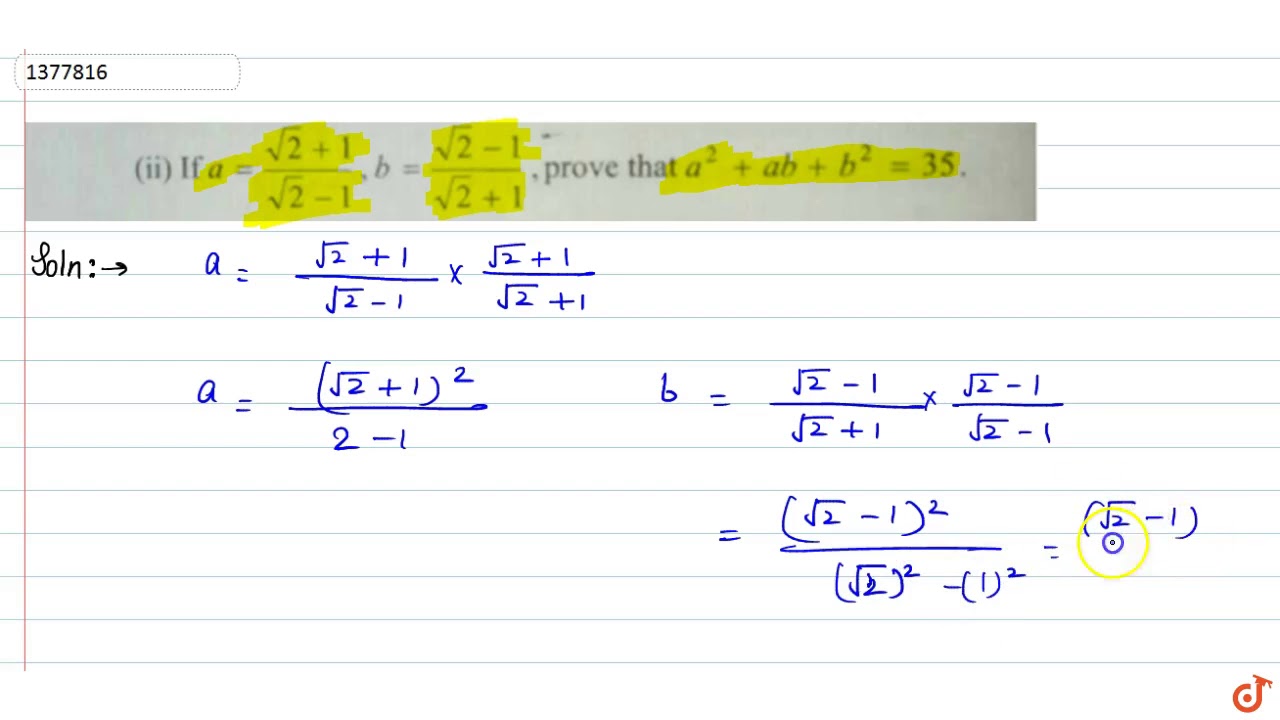 1377816
(ii) If a = √2 + 1 / √2 − 1 , b = √2 − 1 / √2 + 1 , prove that a² + ab + b² = 35.
Soln:→ a = √2 + 1 / √2 − 1 × √2 + 1 / √2 + 1
a = (√2 + 1)² / 2 − 1
b = √2 − 1 / √2 + 1 × √2 − 1 / √2 − 1
= (√2 − 1)² / (√2)² − (1)² = (√2 − 1)